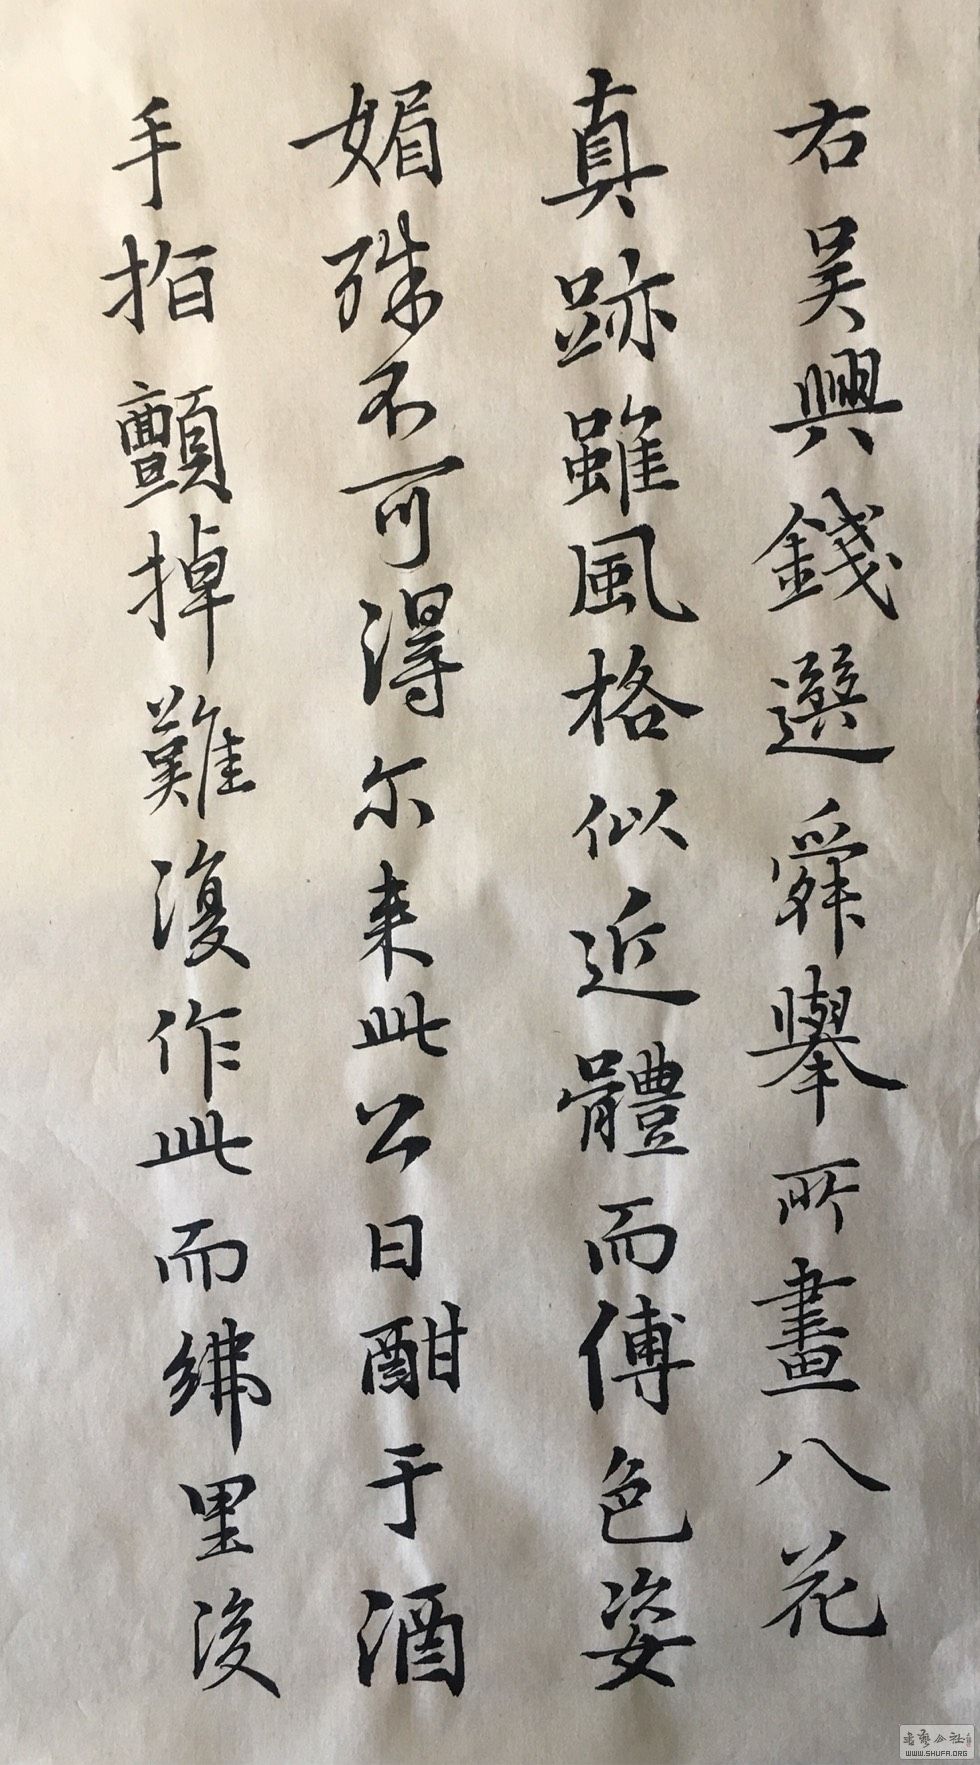 右吴興錢選舜舉所畫八花
真跡雖風格似近體而傅色姿
媚殊不可得尔来此公日酣于酒
手指顫掉難復作此而綈里後
WWW.SHUFA.ORG